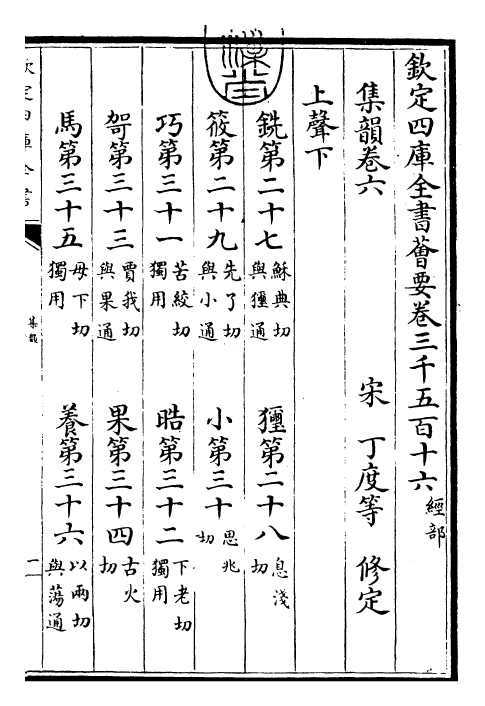 欽定四庫全書薈要卷三千五百十六
經部
集韻卷六
宋 丁度等 修定
上聲下
銑第二十七 穌典切與獮通
獮第二十八 息淺切
篠第二十九 先了切與小通
小第三十 思兆切
巧第三十一 苦絞切獨用
晧第三十二 下老切獨用
哿第三十三 賈我切與果通
果第三十四 古火切
馬第三十五 母下切獨用
養第三十六 以兩切與蕩通
欽定四庫全書
集韻
一